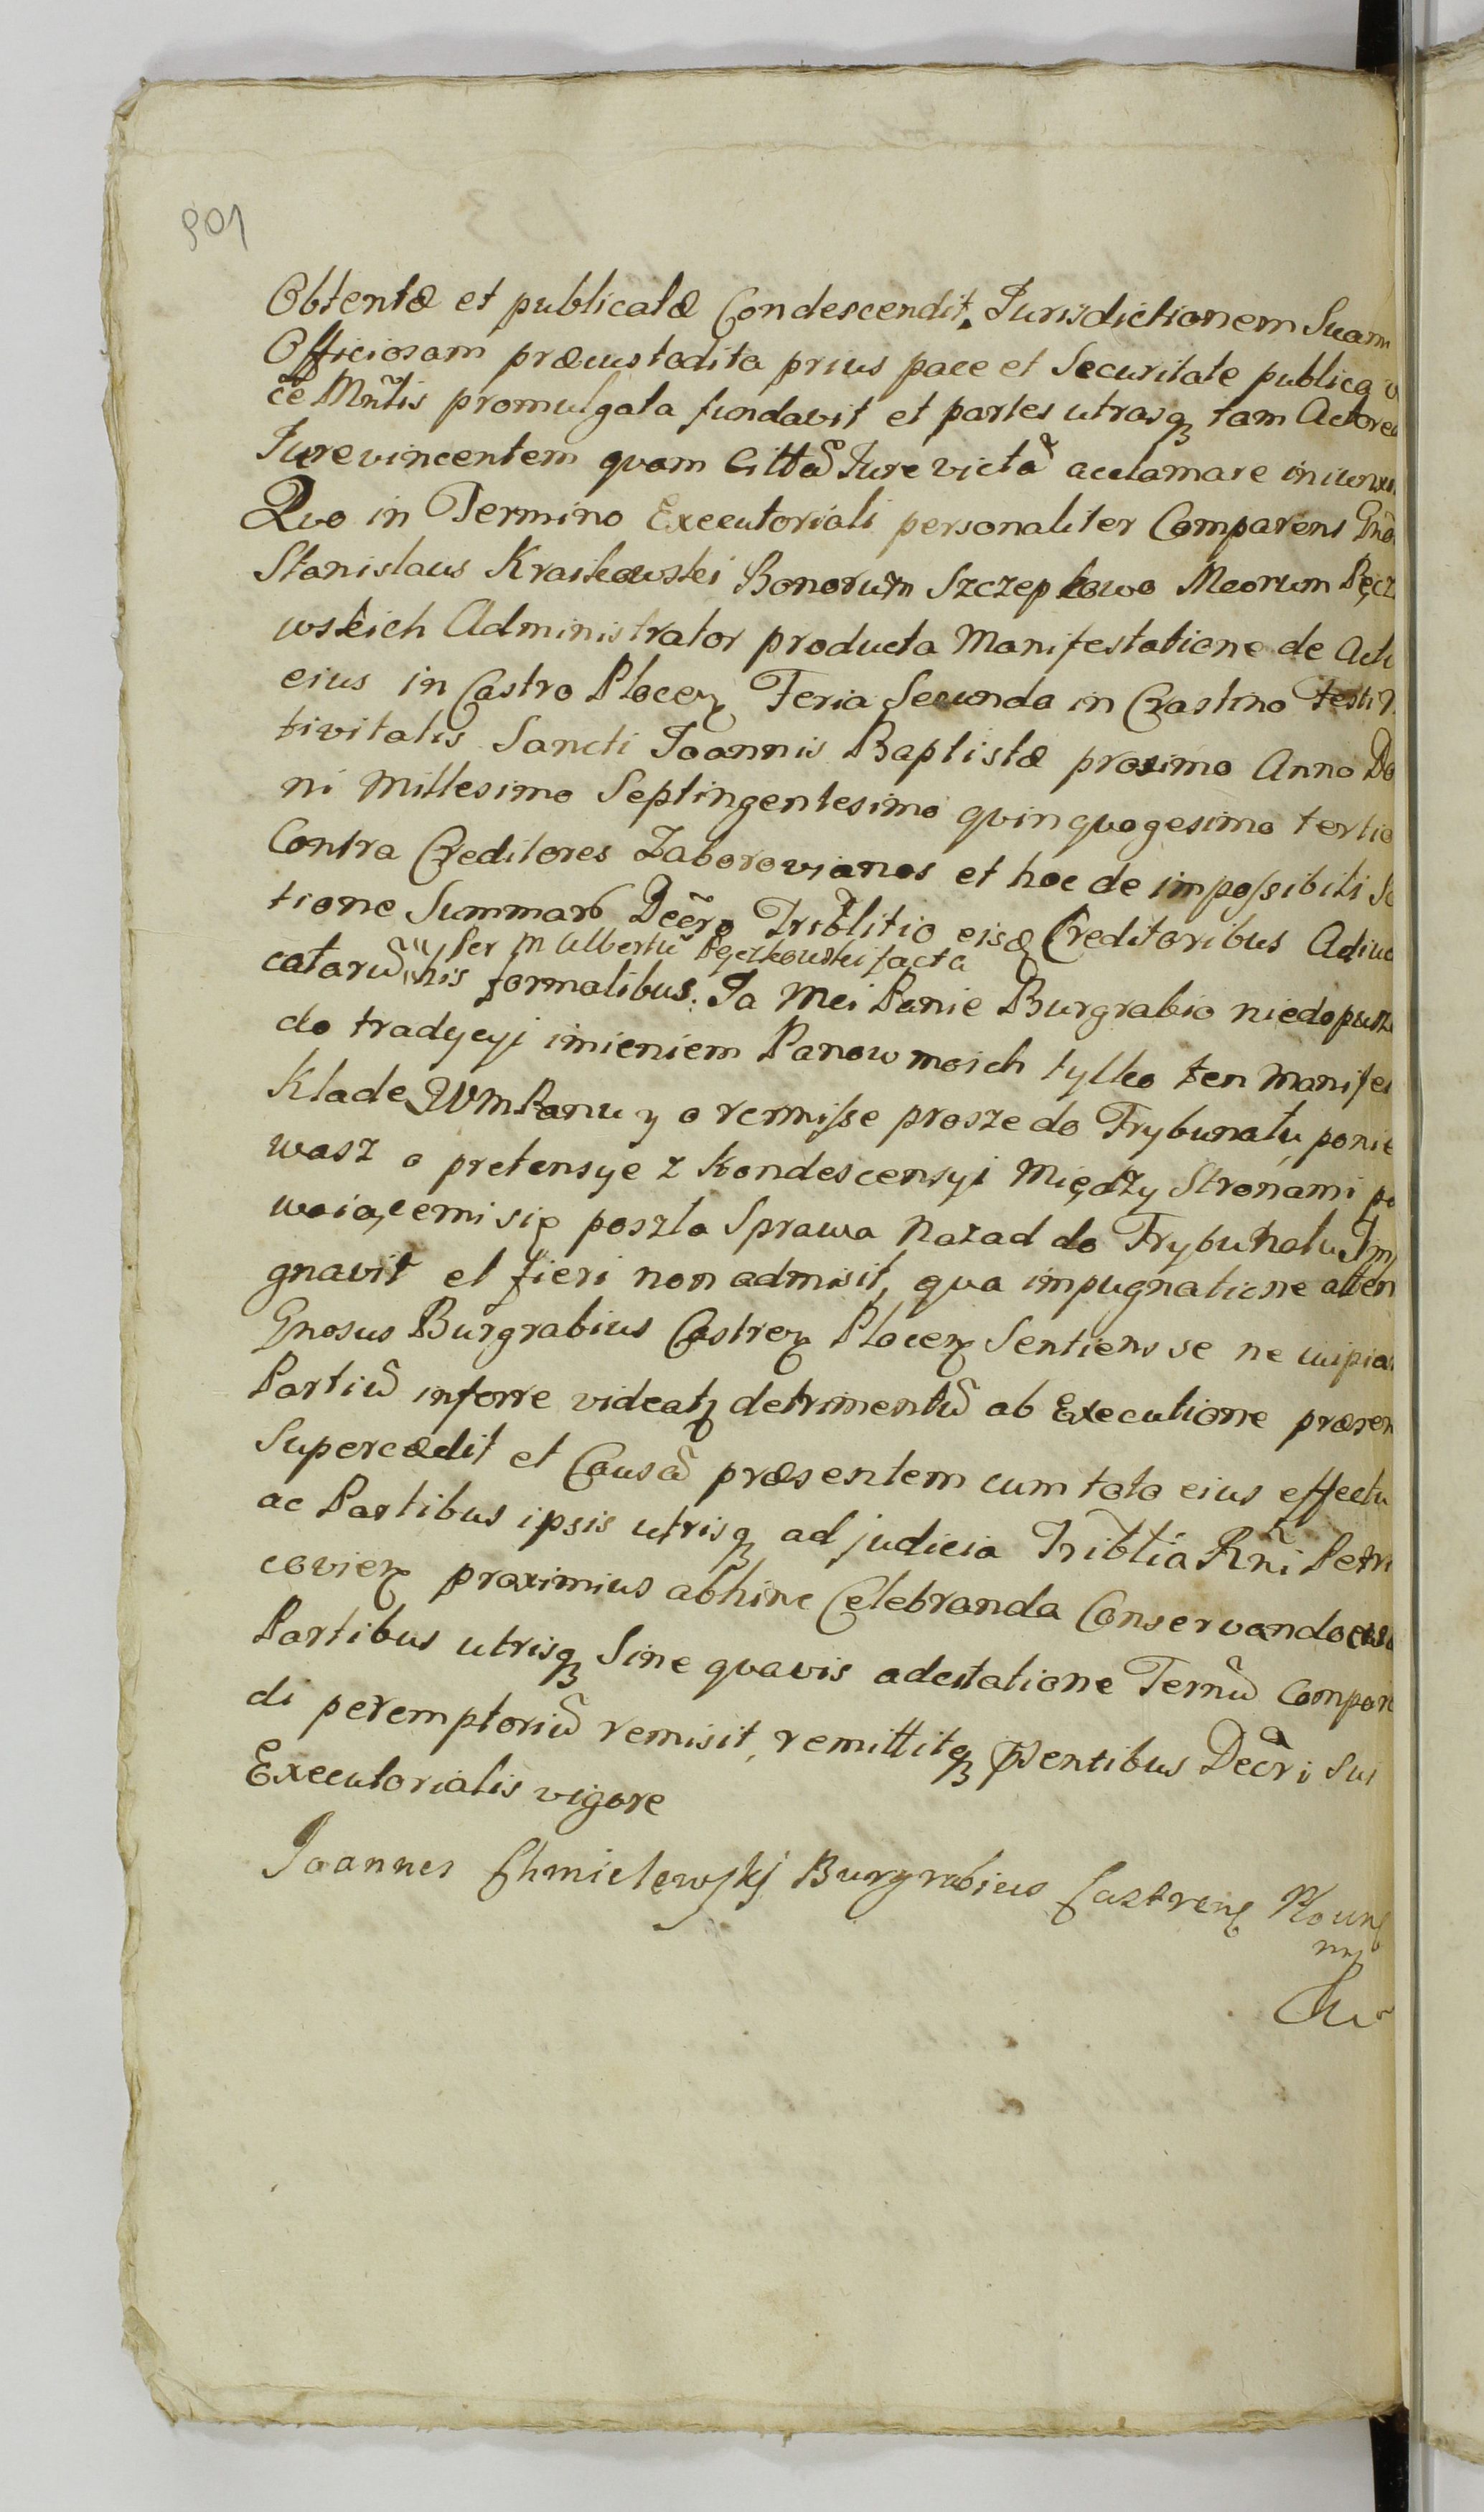 901
Obtentæ et publicatæ Condescendit. Jurisdictionem Suam
Officiosam præcustodita prius pace et Securitate publica
ce Mñtis promulgata fundavit et partes utrasq tam Actorea
Jurevincentem quam Cittã Jure victã acclamare iniunxi
Quo in Termino Executoriali personaliter Comparens Gnõ
Stanislaus Kraikowski Bonorum Szczepkowo Meorum Pęcz
wskich Administrator producta Manifestatione de Actu
eius in Castro Plocen Feria Secunda in Crastino Festi N
tivitatis Sancti Joannis Baptistæ proximo Anno Do
ni Millesimo Septingentesimo quinquagesimo tertio
Contra Creditores Zaborovianos et hoc de impossibili So
tione Summarũ Decr̃o Trib̃litio eisd Creditoribus Adiud
per M Albertũ Pęczkowski facta
catarũ his formalibus: Ja Mci Panie Burgrabio niedopusz
do tradycyi imieniem Panow moich tylko ten manifes
Klade WMPanu y o remisse prosze do Trybunału, ponie
wasz o pretensye z Kondescensyi Między Stronami po
waiącemi się poszła Sprawa Nazad do Trybunalu Imp
gnavit et fieri non admisit, qua impugnatione atten
Gnosus Burgrabius Castren Plocen Sentiens se ne cuipia
Partiũ inferre videatq detrimentũ ab Executione præsen
Supercædit et Causã præsentem cum toto eius effectu
ac Partibus ipsis utrisq ad judicia Trib̃tia Rñi Petri
covien proximius abhinc Celebranda Conservando eisd
Partibus utrisq Sine quavis adcitatione Ternũ Compare
di peremptoriũ remisit, remittitq psentibus Decr̃i Sui
Executorialis vigore
Joannes Chmielewski Burgrabius Castrens Plocens
mp